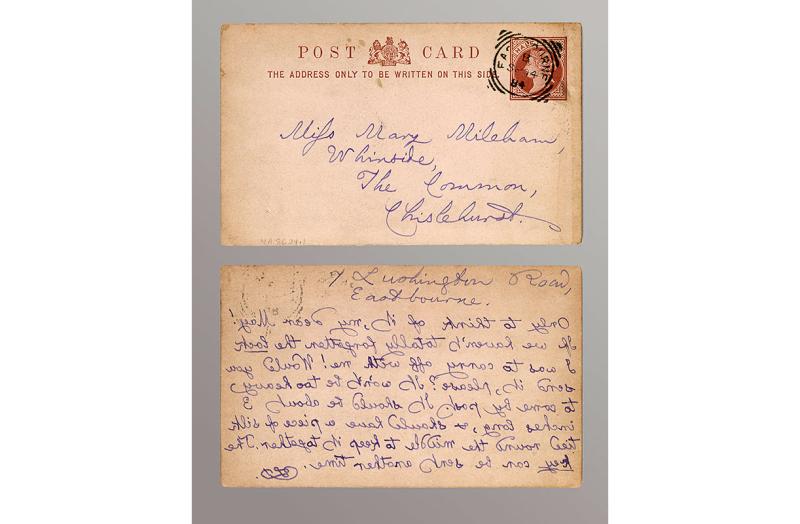 POST CARD
THE ADDRESS ONLY TO BE WRITTEN ON THIS SIDE.
EASTBOURNE
B
84
HALFPENNY
Miss Mary Mileham,
Whinside,
The Common,
Chislehurst.
7, Lushington Road,
Eastbourne.
Only to think of it, my dear May!
If we haven't totally forgotten the lock
I was to carry off with me! Would you
send it, please? It won't be too heavy
to come by post. It should be about 3
inches long, & should have a piece of silk
tied round the middle to keep it together. The
key can be sent another time.
CLD